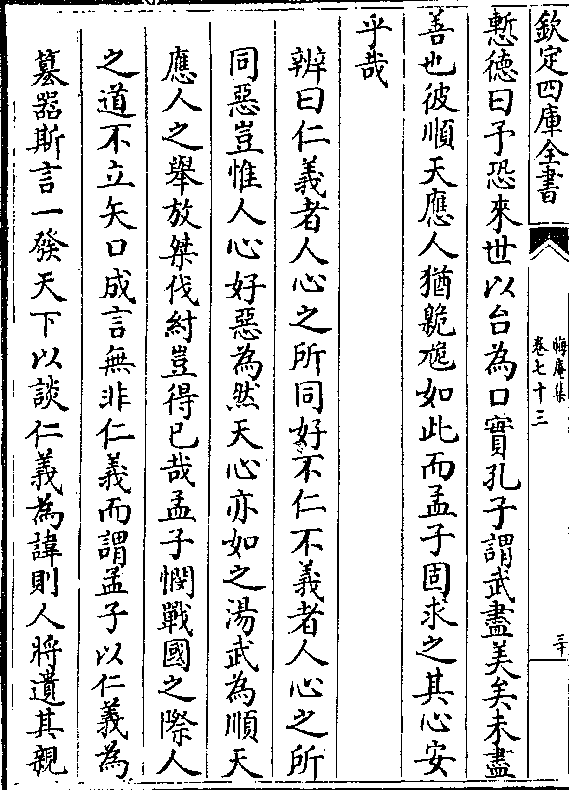 欽定四庫全書
晦庵集
卷七十三
三十
慙德曰予恐來世以台為口實孔子謂武盡美矣未盡
善也彼順天應人猶臲卼如此而孟子固求之其心安
乎哉
辨曰仁義者人心之所同好不仁不義者人心之所
同惡豈惟人心好惡為然天心亦如之湯武為順天
應人之舉放桀伐紂豈得已哉孟子憫戰國之際人
之道不立矢口成言無非仁義而謂孟子以仁義為
簒器斯言一發天下以談仁義為諱則人將遺其親